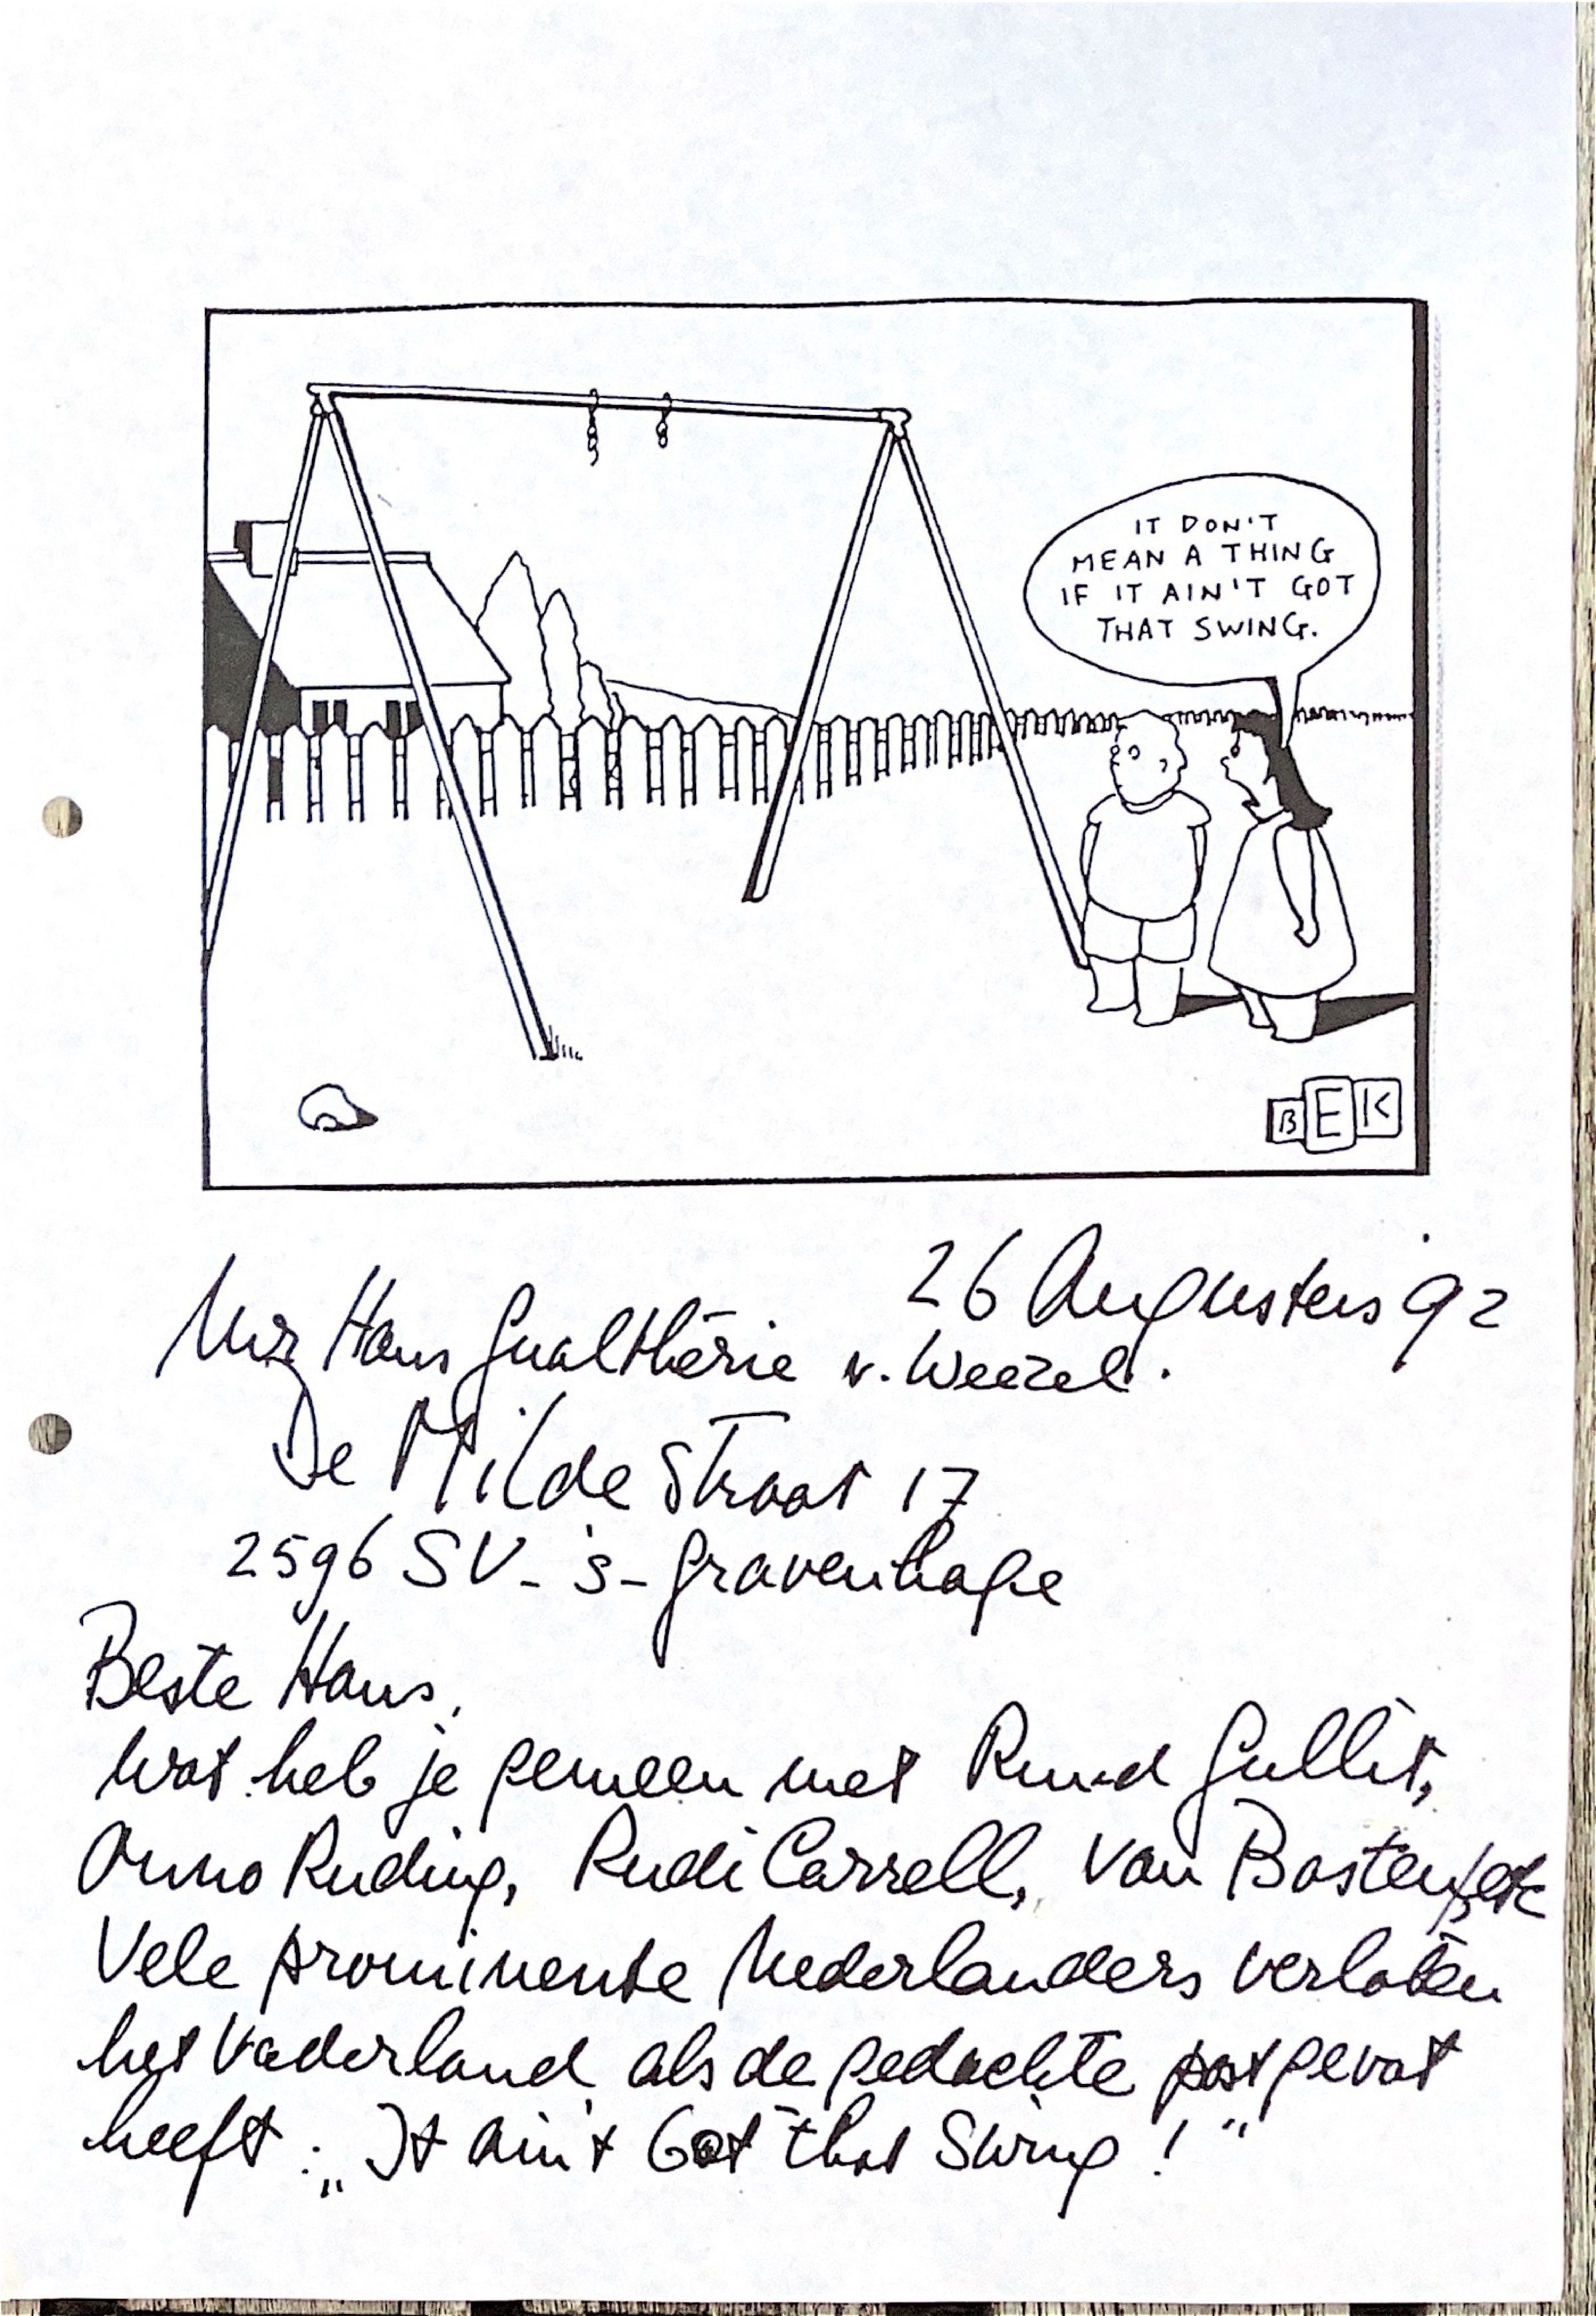 IT DON'T
MEAN A THING
IF IT AIN'T GOT
THAT SWING.
BEK
26 Augustus '92
Mr Hans Gualthérie v. Weezel.
De Milde Straat 17
2596 SV - 's-Gravenhage
Beste Hans,
wat heb je gemeen met Ruud Gullit,
Onno Ruding, Rudi Carrell, van Basten, etc
Vele prominente Nederlanders verlaten
het Vaderland als de gedachte post gevat
heeft: „It ain't Got that Swing!"